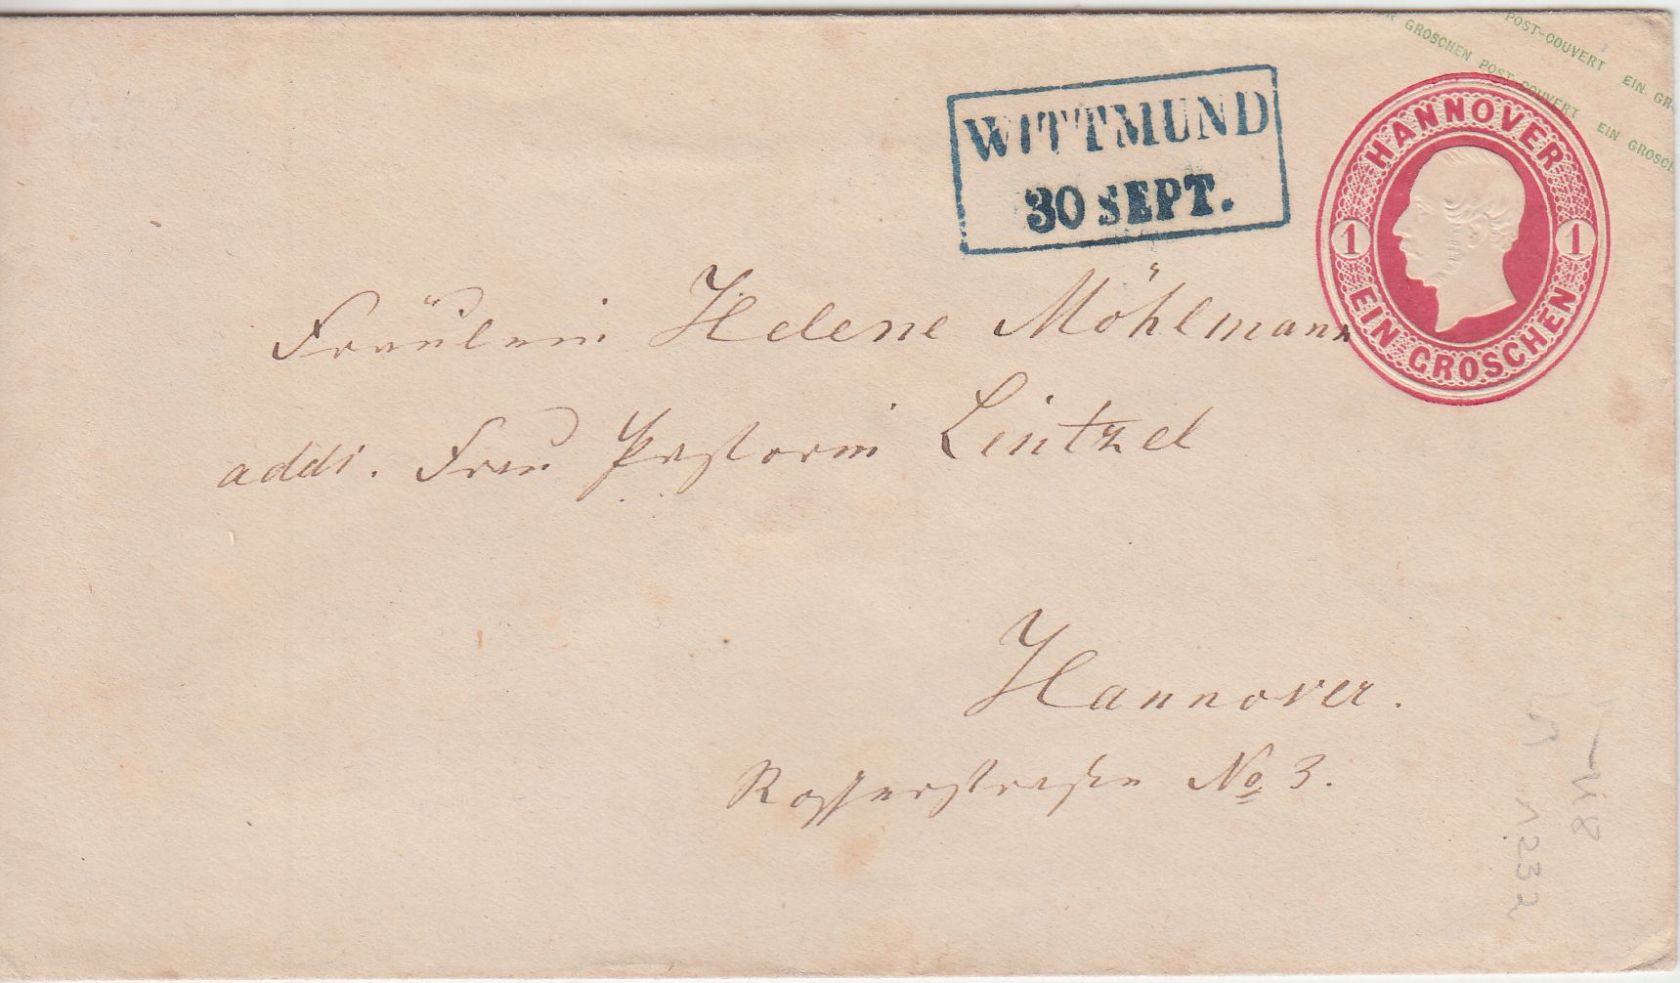 POST-COUVERT EIN GR
GROSCHEN POST-COUVERT EIN GROSCH
WITTMUND
30 SEPT.
HANNOVER
1 1
EIN GROSCHEN
Fräulein Helene Möhlmann
addr. Frau Pastorin Lintzel
Hannover.
No 3.
1232